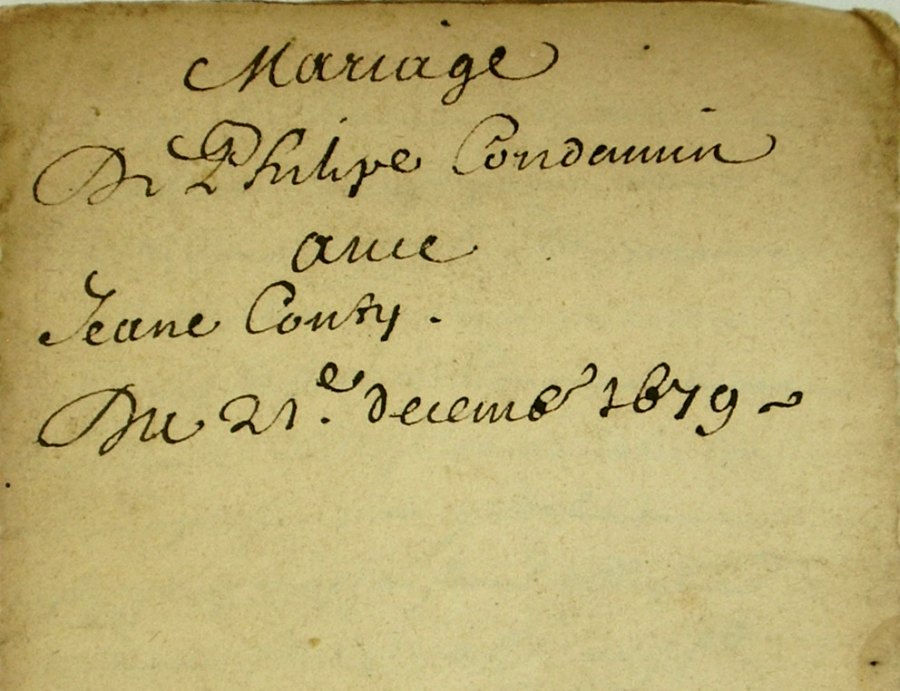 Mariage
De Philipe Condamin
avec
Jeane Conty.
Du 21.e decemb.e 1679